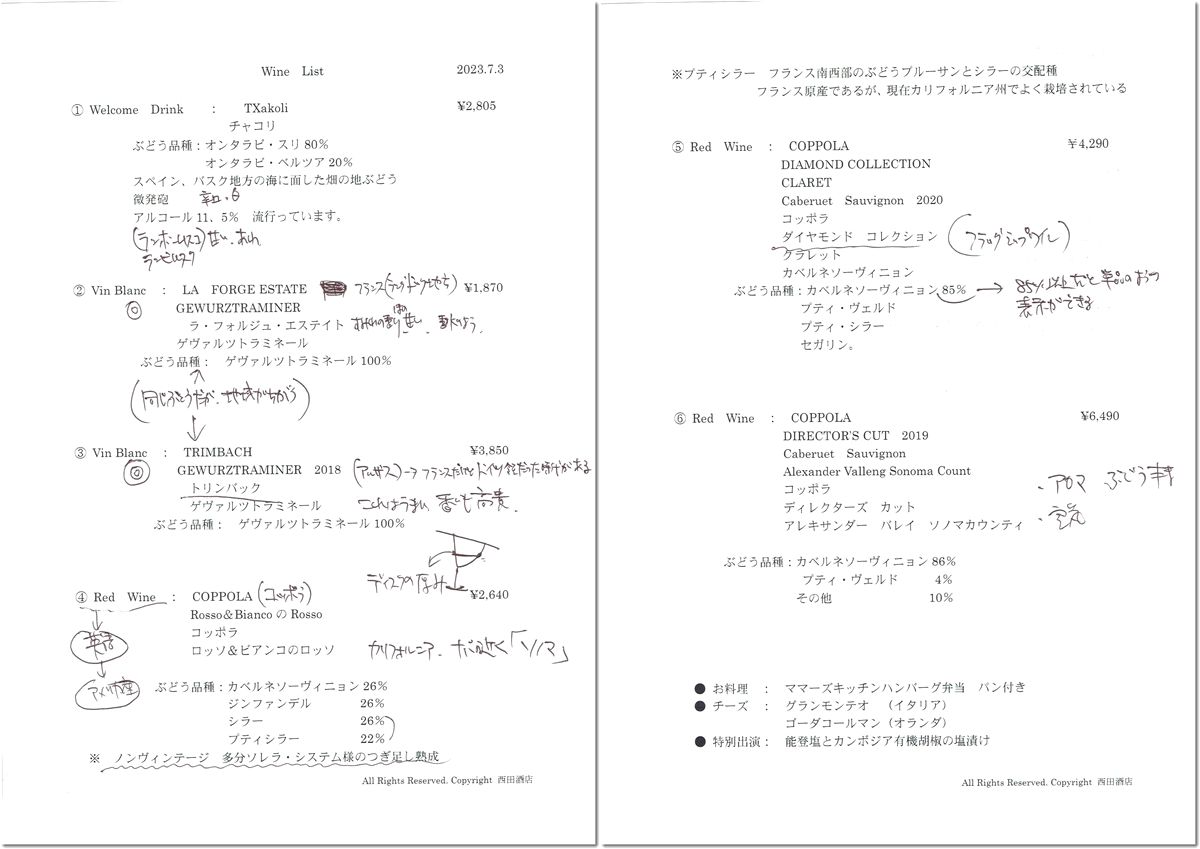 Wine List 2023.7.3
① Welcome Drink : TXakoli ¥2,805
チャコリ
ぶどう品種：オンタラビ・スリ 80%
オンタラビ・ベルツア 20%
スペイン、バスク地方の海に面した畑の地ぶどう
微発砲 辛口・白
アルコール 11、5% 流行っています。
(ランボームスコ)甘い、あわ
ランビルスク
② Vin Blanc : LA FORGE ESTATE フランス(ラングドック地方) ¥1,870
◎ GEWURZTRAMINER
ラ・フォルジュ・エステイト
ゲヴァルツトラミネール
ぶどう品種： ゲヴァルツトラミネール 100%
(同じぶどうだが、地域がちがう)
③ Vin Blanc : TRIMBACH ¥3,850
◎ GEWURZTRAMINER 2018 (アルザス)→フランスだけどドイツ領だった時代がある
トリンバック
ゲヴァルツトラミネール これはうまい 香りも高貴。
ぶどう品種： ゲヴァルツトラミネール 100%
ディスクの厚み
④ Red Wine : COPPOLA (コッポラ) ¥2,640
Rosso&Bianco の Rosso
英語
コッポラ
ロッソ&ビアンコのロッソ カリフォルニア、ナパ近く「ソノマ」
アメリカ産
ぶどう品種：カベルネソーヴィニョン 26%
ジンファンデル 26%
シラー 26%
プティシラー 22%
※ ノンヴィンテージ 多分ソレラ・システム様のつぎ足し熟成
All Rights Reserved. Copyright 西田酒店
※プティシラー フランス南西部のぶどうプルーサンとシラーの交配種
フランス原産であるが、現在カリフォルニア州でよく栽培されている
⑤ Red Wine : COPPOLA ¥4,290
DIAMOND COLLECTION
CLARET
Caberuet Sauvignon 2020
コッポラ
ダイヤモンド コレクション (フラッグシップワイン)
クラレット
カベルネソーヴィニョン
ぶどう品種：カベルネソーヴィニョン 85% → 85%以上だと単品の
表示ができる
プティ・ヴェルド
プティ・シラー
セガリン。
⑥ Red Wine : COPPOLA ¥6,490
DIRECTOR'S CUT 2019
Caberuet Sauvignon
Alexander Valleng Sonoma Count
コッポラ ・アロマ ぶどう
ディレクターズ カット
アレキサンダー バレイ ソノマカウンティ ・空気
ぶどう品種：カベルネソーヴィニョン 86%
プティ・ヴェルド 4%
その他 10%
● お料理 ： ママーズキッチンハンバーグ弁当 パン付き
● チーズ ： グランモンテオ （イタリア）
ゴーダコールマン（オランダ）
● 特別出演： 能登塩とカンボジア有機胡椒の塩漬け
All Rights Reserved. Copyright 西田酒店